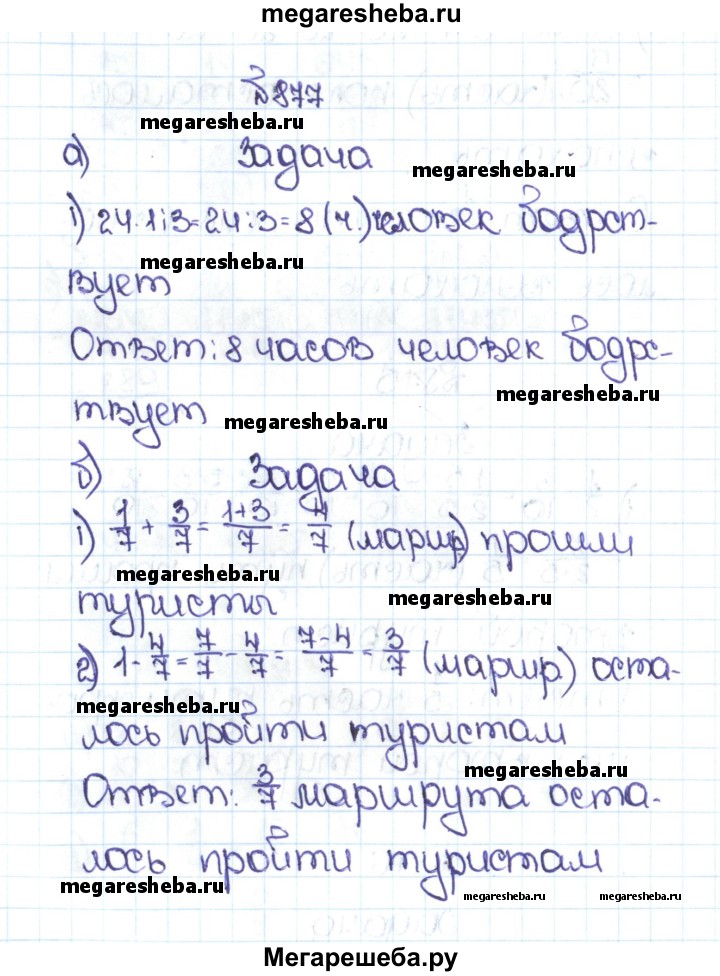 megaresheba.ru
№877
megaresheba.ru
а) Задача
megaresheba.ru
1) 24·1:3=24:3=8 (ч.) человек бодрст-
megaresheba.ru
вует
Ответ: 8 часов человек бодрс-
megaresheba.ru
твует
megaresheba.ru
б) Задача
1) 1/7 + 3/7 = 1+3/7 = 4/7 (маршр) прошли
megaresheba.ru
megaresheba.ru
туристы
2) 1-4/7 = 7/7 - 4/7 = 7-4/7 = 3/7 (маршр) оста-
megaresheba.ru
лось пройти туристам
megaresheba.ru
Ответ: 3/7 маршрута оста-
лось пройти туристам
megaresheba.ru
megaresheba.ru
megaresheba.ru
Мегарешеба.ру